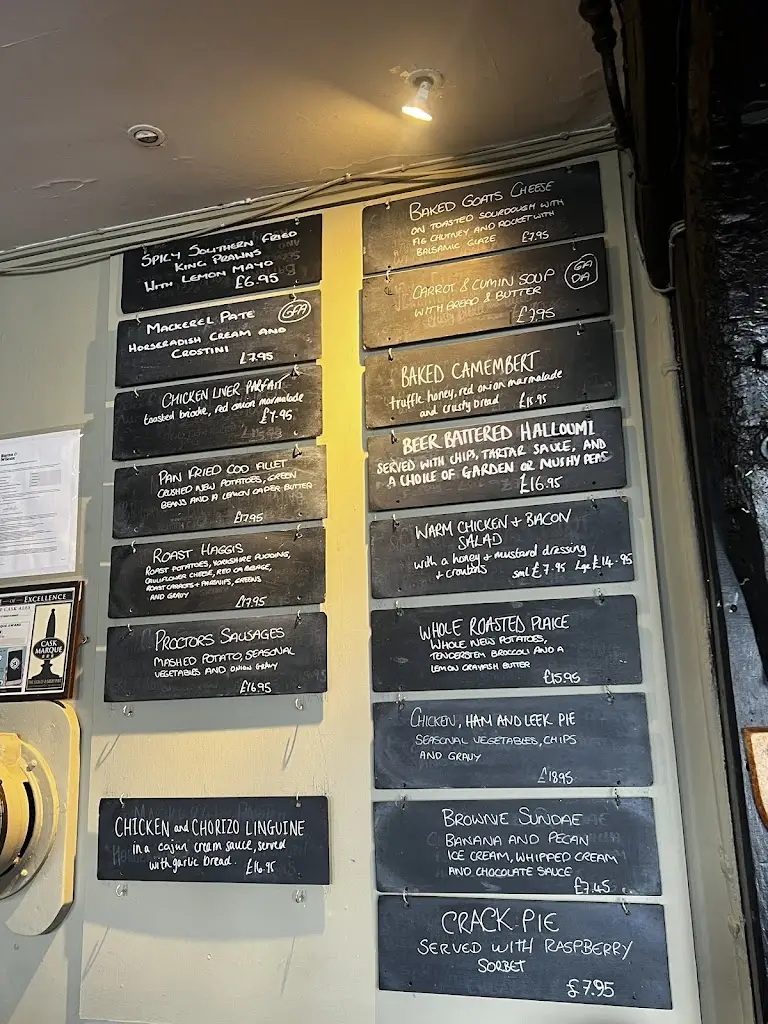 SPICY SOUTHERN FRIED
KING PRAWNS
WITH LEMON MAYO
£6.95
MACKEREL PATE
GFA
HORSERADISH CREAM AND
CROSTINI
£7.95
CHICKEN LIVER PARFAIT
toasted brioche, red onion marmalade
£7.95
PAN FRIED COD FILLET
CRUSHED NEW POTATOES, GREEN
BEANS AND A LEMON CAPER BUTTER
£17.95
ROAST HAGGIS
ROAST POTATOES, YORKSHIRE PUDDING,
CAULIFLOWER CHEESE, RED CABBAGE,
ROAST CARROTS + PARSNIPS, GREENS
AND GRAVY
£17.95
PROCTORS SAUSAGES
MASHED POTATO, SEASONAL
VEGETABLES AND ONION GRAVY
£16.95
CHICKEN and CHORIZO LINGUINE
in a cajun cream sauce, served
with garlic bread. £16.95
BAKED GOATS CHEESE
ON TOASTED SOURDOUGH WITH
FIG CHUTNEY AND ROCKET WITH
BALSAMIC GLAZE £7.95
CARROT & CUMIN SOUP
WITH BREAD & BUTTER
£7.95
BAKED CAMEMBERT
truffle honey, red onion marmalade
and crusty bread £15.95
BEER BATTERED HALLOUMI
SERVED WITH CHIPS, TARTAR SAUCE, AND
A CHOICE OF GARDEN OR MUSHY PEAS
£16.95
WARM CHICKEN + BACON
SALAD
with a honey + mustard dressing
+ croutons sml £7.95 Lge £14.95
WHOLE ROASTED PLAICE
WHOLE NEW POTATOES,
TENDERSTEM BROCCOLI AND A
LEMON CRAYFISH BUTTER
£15.95
CHICKEN, HAM AND LEEK PIE
SEASONAL VEGETABLES, CHIPS
AND GRAVY
£18.95
BROWNIE SUNDAE
BANANA AND PECAN
ICE CREAM, WHIPPED CREAM
AND CHOCOLATE SAUCE
£7.45
CRACK PIE
SERVED WITH RASPBERRY
SORBET
£7.95
OF EXCELLENCE
CASK
MARQUE